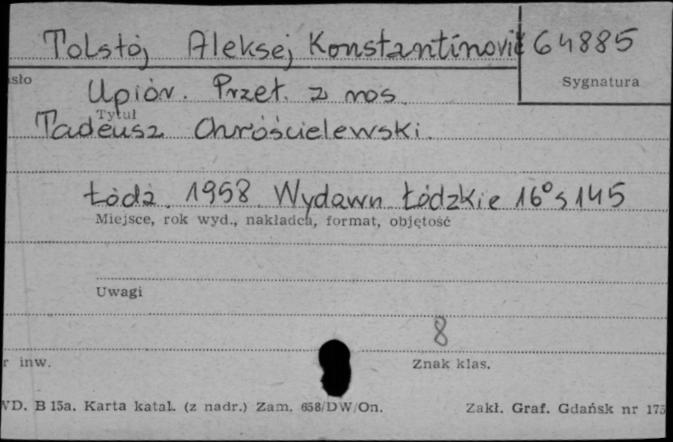 Tolstoj Aleksej Konstantinovič 64885
sło
Sygnatura
Upiór. Przeł. z ros.
Tytuł
Tadeusz Chróścielewski.
Łódź. 1958. Wydawn Łódzkie 16° s 145
Miejsce, rok wyd., nakładca, format, objętość
Uwagi
8
r inw.
Znak klas.
WD. B 15a. Karta katal. (z nadr.) Zam. 658/DW/On. Zakł. Graf. Gdańsk nr 175